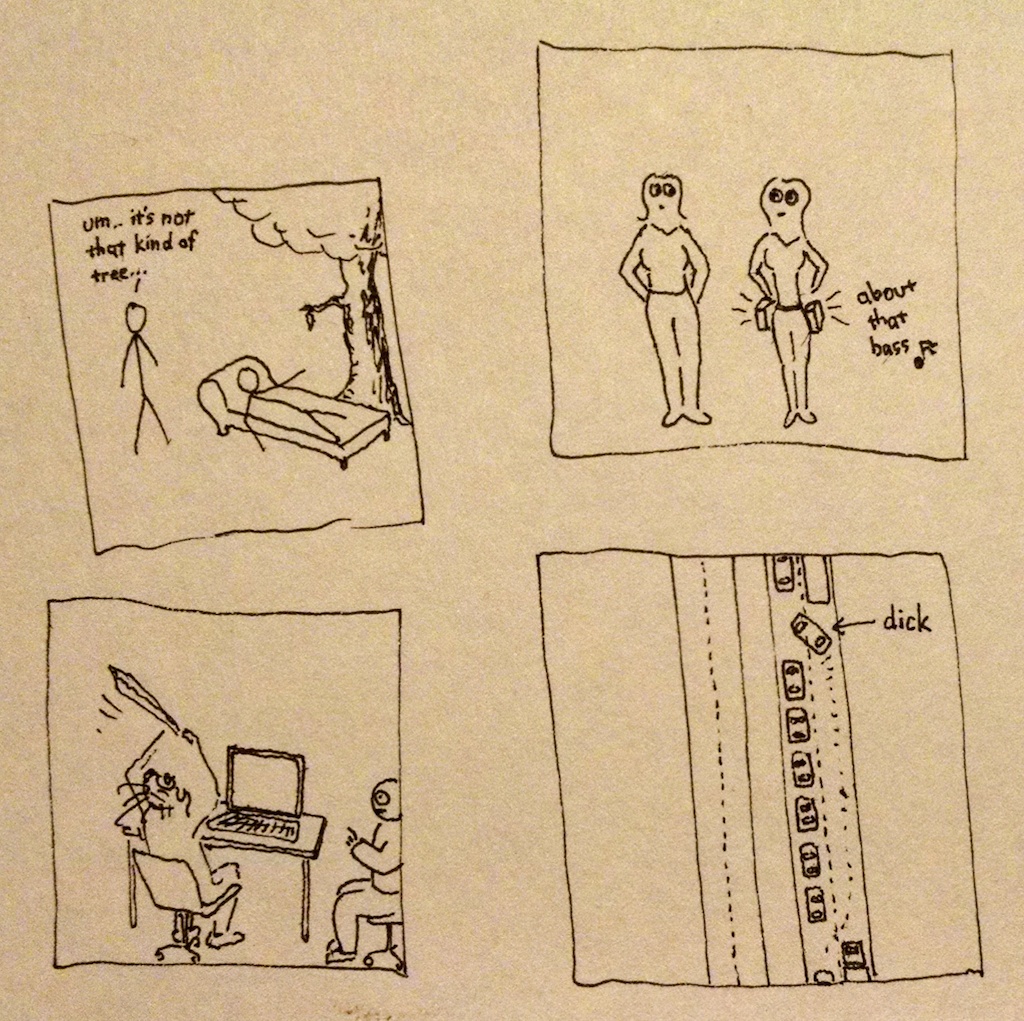 um.. it's not
that kind of
tree...
about
that
bass
dick